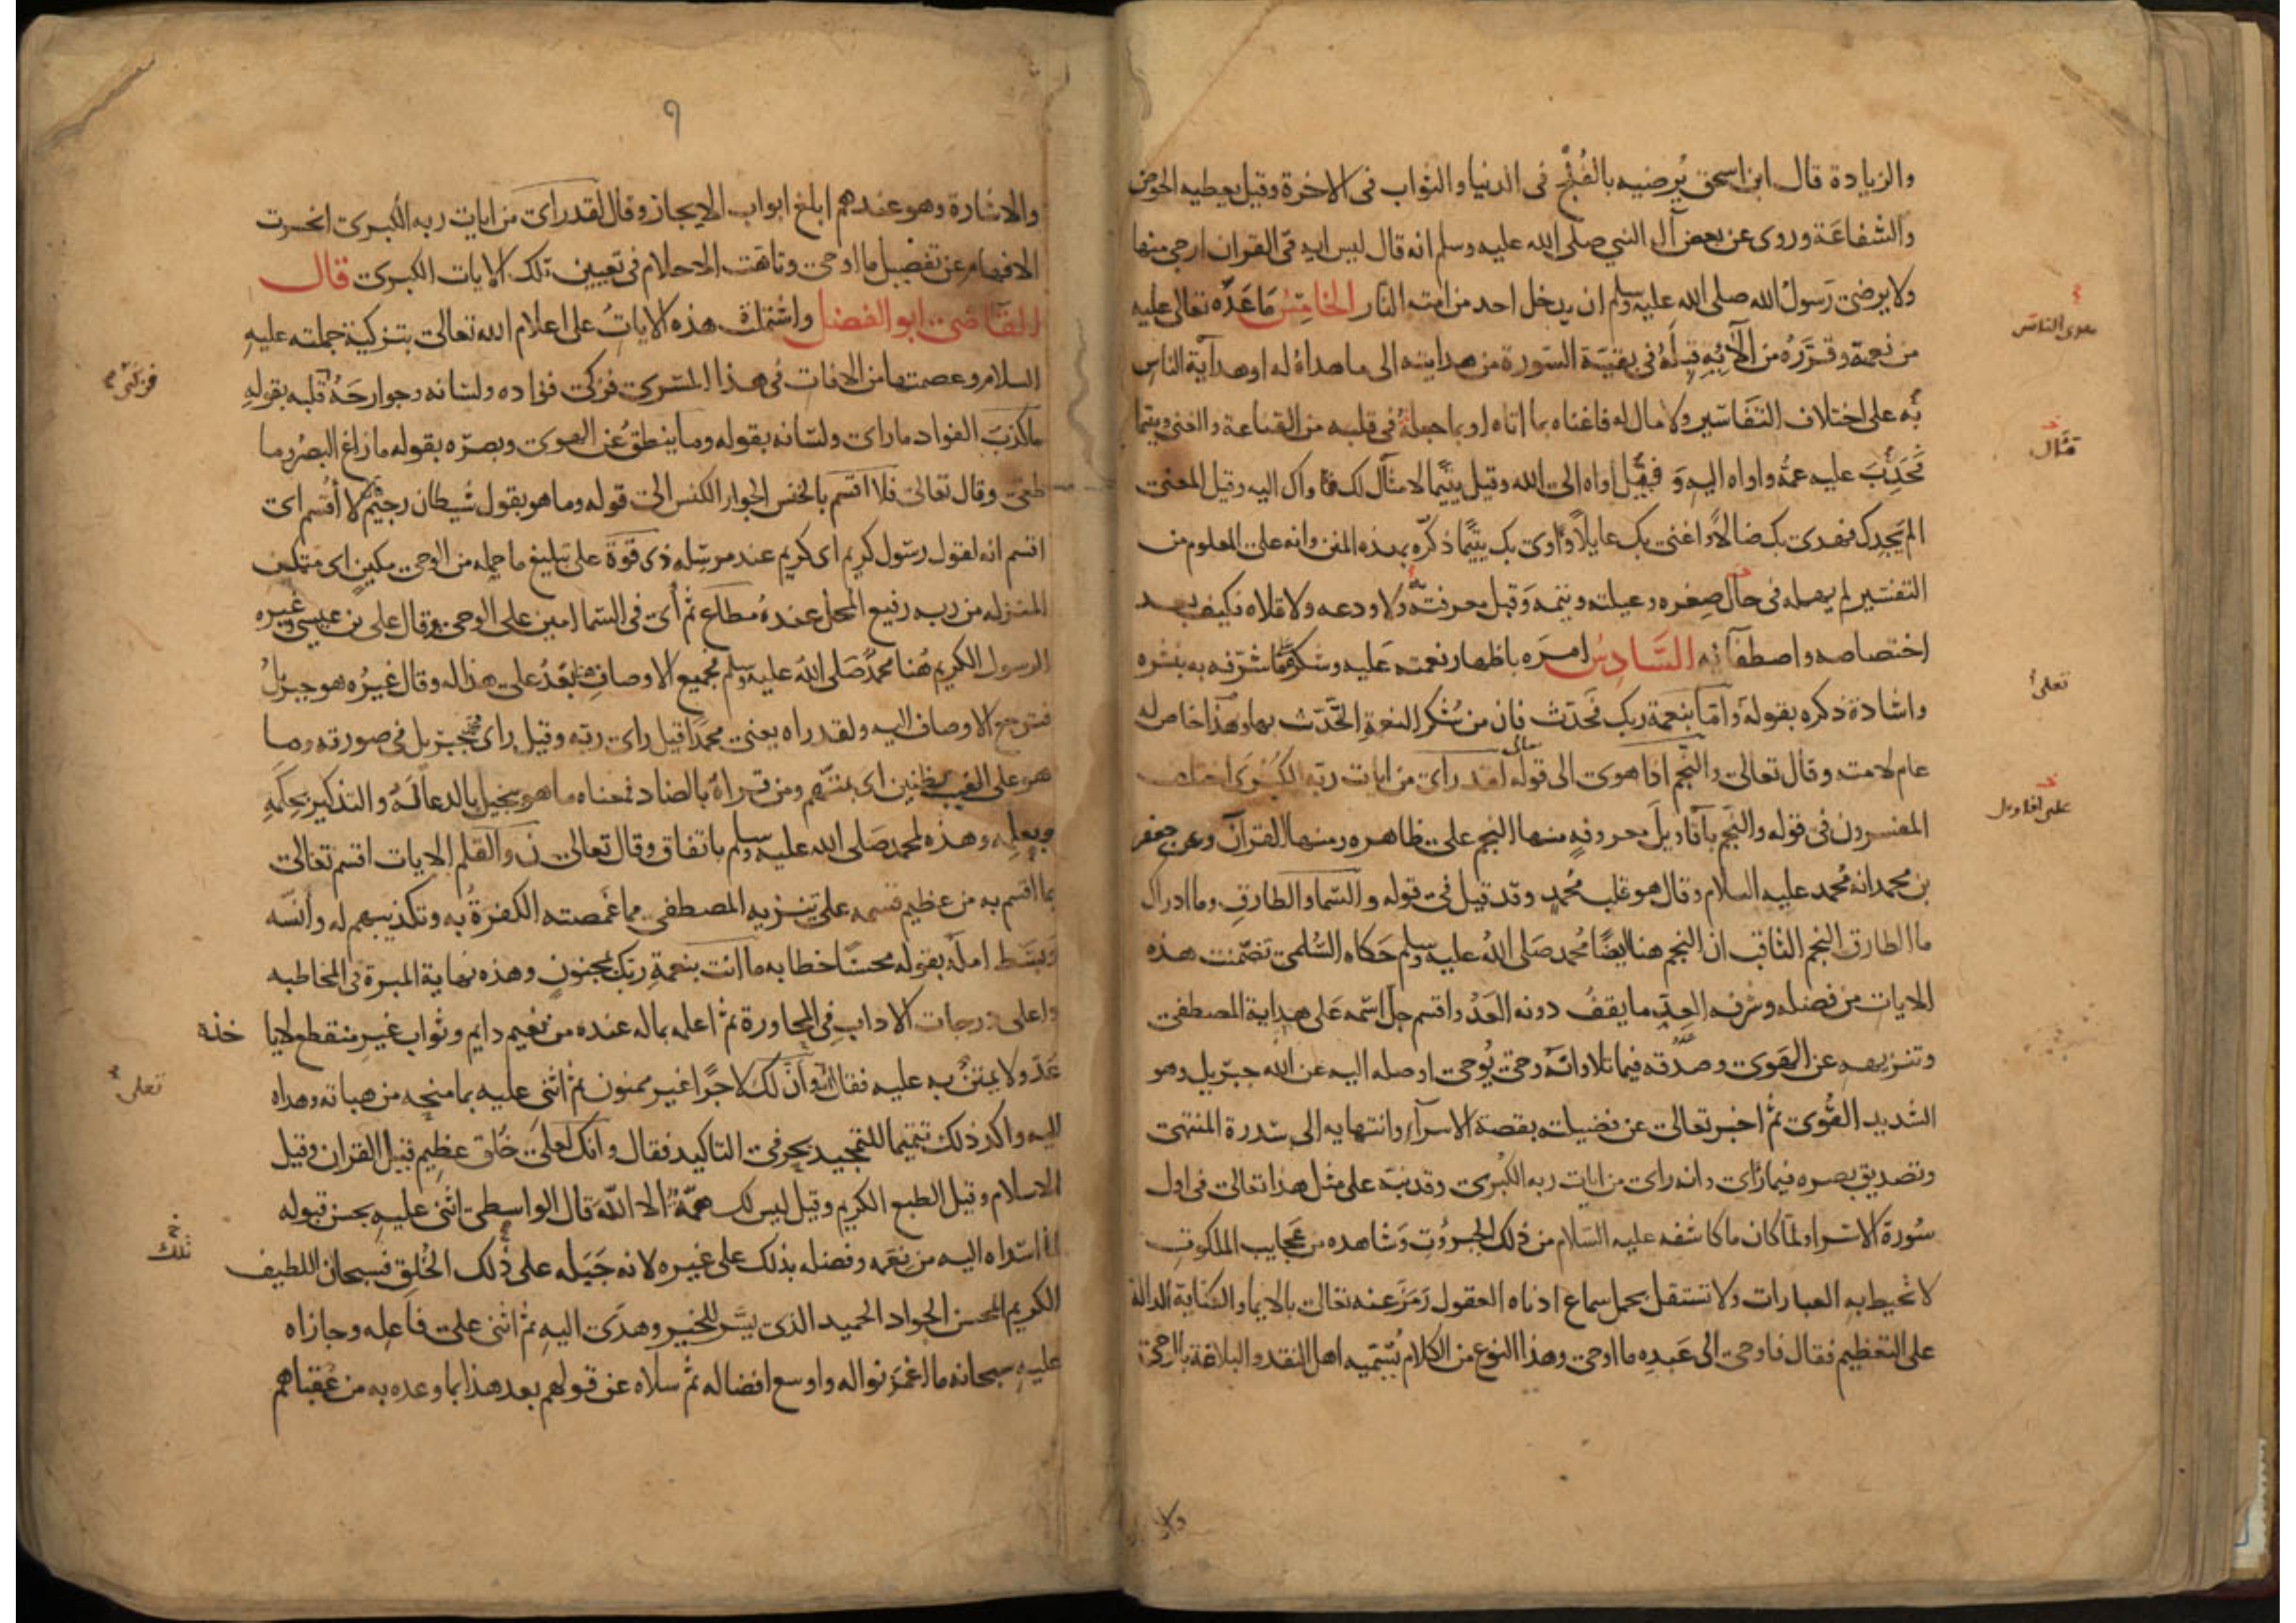 والزيادة قال ابن اسحق يُرضيه بالفُلْج فى الدنيا والثواب فى الاخرة وقيل يعطيه الحوض
والشفاعَة وروى عن بعض آل النبي صلى الله عليه وسلم انه قال ليس اية فى القران ارجى منها
ولا يرضى رَسولُ الله صلى الله عليه وسلم ان يدخل احد من امته النار الخامِسُ مَا عَدَّه تعالى عليه
من نعمه وقرَّرَهُ من آلائِهِ قِبَلَهُ فى بقيّة السّورة من هدايته الى ما هداهُ له او هدآية الناسِ
بُه على اختلاف التفاسّير ولا مال له فاغناه بما اتاه او بما جعلهُ فى قلبه من القناعة والغنى ويتيما
فَحَدِبَ عليه عمهُ واواه اليه وَ فقيلَ اواه الى الله وقيل يتيمًا لا مثال لك فاواك اليه وقيل المعنى
الم يَجِدك فهدى بك ضالاً واغنى بك عايلاً واوى بك يتيمًا ذكّره بهذه المنن وانه على المعلوم من
التفسير لم يهمله فى حال صِغره وعيلته ويتمه وَقبل معرفته ولا ودعه ولا قلاه فكيف بعد
اختصاصه واصطفآئه السّادِسُ امرَه باظهار نعمته عَليه وشكر ما شرّفه به بنشره
واشادة ذكره بقوله وَامّا بنعمة ربك فَحَدّث فان من شُكر النعمة التَّحَدّث بها وهذا خاص له
عام لامته وقال تعالى والنّجم اذا هوى الى قوله تعالى لقد راى من ايات ربّه الكُبرَى اختلف
المفسرون فى قوله والنّجم بأقاويلَ معروفةٍ منها النجم على ظاهره ومنها القرآن وعن جعفر
بن محمد انه مُحمد عليه السلام وقال هو قلب مُحمدٍ وقد قيل فى قوله والسّماء والطارقِ وما ادراك
ما الطارق النجم الثاقب ان النجم هنا ايضًا مُحمد صَلى اللهُ عليه وسلم حَكاه السُّلمى تضمّنت هذه
الايات من فضله وشرفه العِدّ ما يقفُ دونه العَدّ واقسم جلّ اسّمه عَلى هداية المصطفى
وتنزيهه عن الهَوى وصدّقه فيما تلا وانّه وحىٌ يُوحى اوصله اليه عن الله جبريل وهو
الشديد القُوى ثم اخبر تعالى عن فضيلته بقصة الاسرآء وانتهايه الى سّدرة المنتهى
وتصديق بصره فيما رأى وانه راى من ايات ربه الكُبرى وقد نبّه على مثل هذا تعالى فى اول
سُورة الاسّراء ولمّا كان ما كاشفه عليه السّلام من ذلك الجبرُوُت وَشاهده من عَجايب الملكوت
لا تحيط به العبارات ولا تستقل بحمل سماع ادناه العقول رَمَزَ عنه تعالى بالايماء والكناية الدالة
على التعظيم فقال فاوحى الى عَبدِه ما اوحى وهذا النوع من الكلام يُسّمّيه اهل النقد والبلاغة بالوحى
والا
هوى الناس
قال
تعلى
على اقاويل
٩
والاشارة وهو عندهم ابلغ ابواب الايجاز وقال لقد راى من ايات ربه الكبرى انحسرت
الافهام عن تفصيل ما اوحى وتاهت الاحلام فى تعيين تلك الايات الكبرى قال
القاضى ابو الفضل واشتملت هذه الاياتُ على اعلام الله تعالى بتزكية جملته عليه
السلام وعصمتها من الافات فى هذا المسّرى فزكى فؤاده ولسانه وجوارحَهُ قلبه بقولهِ
ما كذبَ الفواد ما راى ولسّانه بقوله وما ينطقُ عن الهوى وبصرّه بقوله ما زاغ البصُر وما
طغى وقال تعالى فلا اقسم بالخنس الجوار الكنس الى قوله وما هو بقول شيطان رجيمٍ لا أقسم اى
اقسم انه لقول رسّول كريم اى كريم عند مرسِله ذى قوّة على تبليغ ما حمله من الوحى مكينٍ اى متمكن
المنزله من ربه رفيع المحل عندهُ مطاع ثم أى فى السّما امين على الوحى وقال على بن عيسى وغيره
الرسول الكريم هُنا محمدٌ صَلى اللهُ عليه وسلم فجميع الاوصافِ بَعْدُ على هذا له وقال غيرُه هو جبريلُ
فترجع الاوصاف اليه ولقد راه يعنى محمدًا قيل راى ربّه وقيل راى جبرّيل فى صورته وما
هو على الغيب بظنين اى بمتّهم ومن قراهُ بالضاد فمعناه ما هو ببخيل بالدعا لَهُ والتذكير بحِكَمِهِ
وبعِلمِه وهذه لمحمد صَلى الله عليه وسلم باتفاق وقال تعالى نٓ والقلم الايات اقسم تعالى
بما اقسم به من عظيم قسمه على تنزيه المصطفى مما غَمصته الكفرةُ به وتكذيبهم له وأنسّه
وبَسّط امله بقوله محسنًا خطابه ما انت بنعمةِ ربك بمجنونٍ وهذه نهاية المبرة فى المخاطبه
واعلى درجات الاداب فى المحاورة ثم اعلمه بما له عنده من نعيم دايم وثواب غير منقطع لايا خذه
عَدّ ولا يمتنُّ به عليه فقال وَاِنّ لك لاجرًا غير ممنون ثم اثنى عليه بما منحه من هباته وهداه
اليه واكد ذلك تتميما للتمجيد بحرفى التاكيد فقال وانك لعلى خُلق عظيم قيل القران وقيل
الاسلام وقيل الطبع الكريم وقيل ليس لك همّةٌ الا الله قال الواسطى اثنى عليهِ بحسن قبوله
لما اسّداه اليه من نِعَمه وفضله بذلك على غيره لانه جَبَله على ذلك الخُلقِ فسبحان اللطيف
الكريم المحسن الجواد الحميد الذى يسّر للخير وهدَى اليهِ ثم اثنى على فاعِله وجازاه
عليهِ سبحانه ما اغمَر نواله واوسع افضاله ثم سلّاه عن قولهم بعد هذا بما وعده به من عُقباهم
فزكى
تعلى
تلك